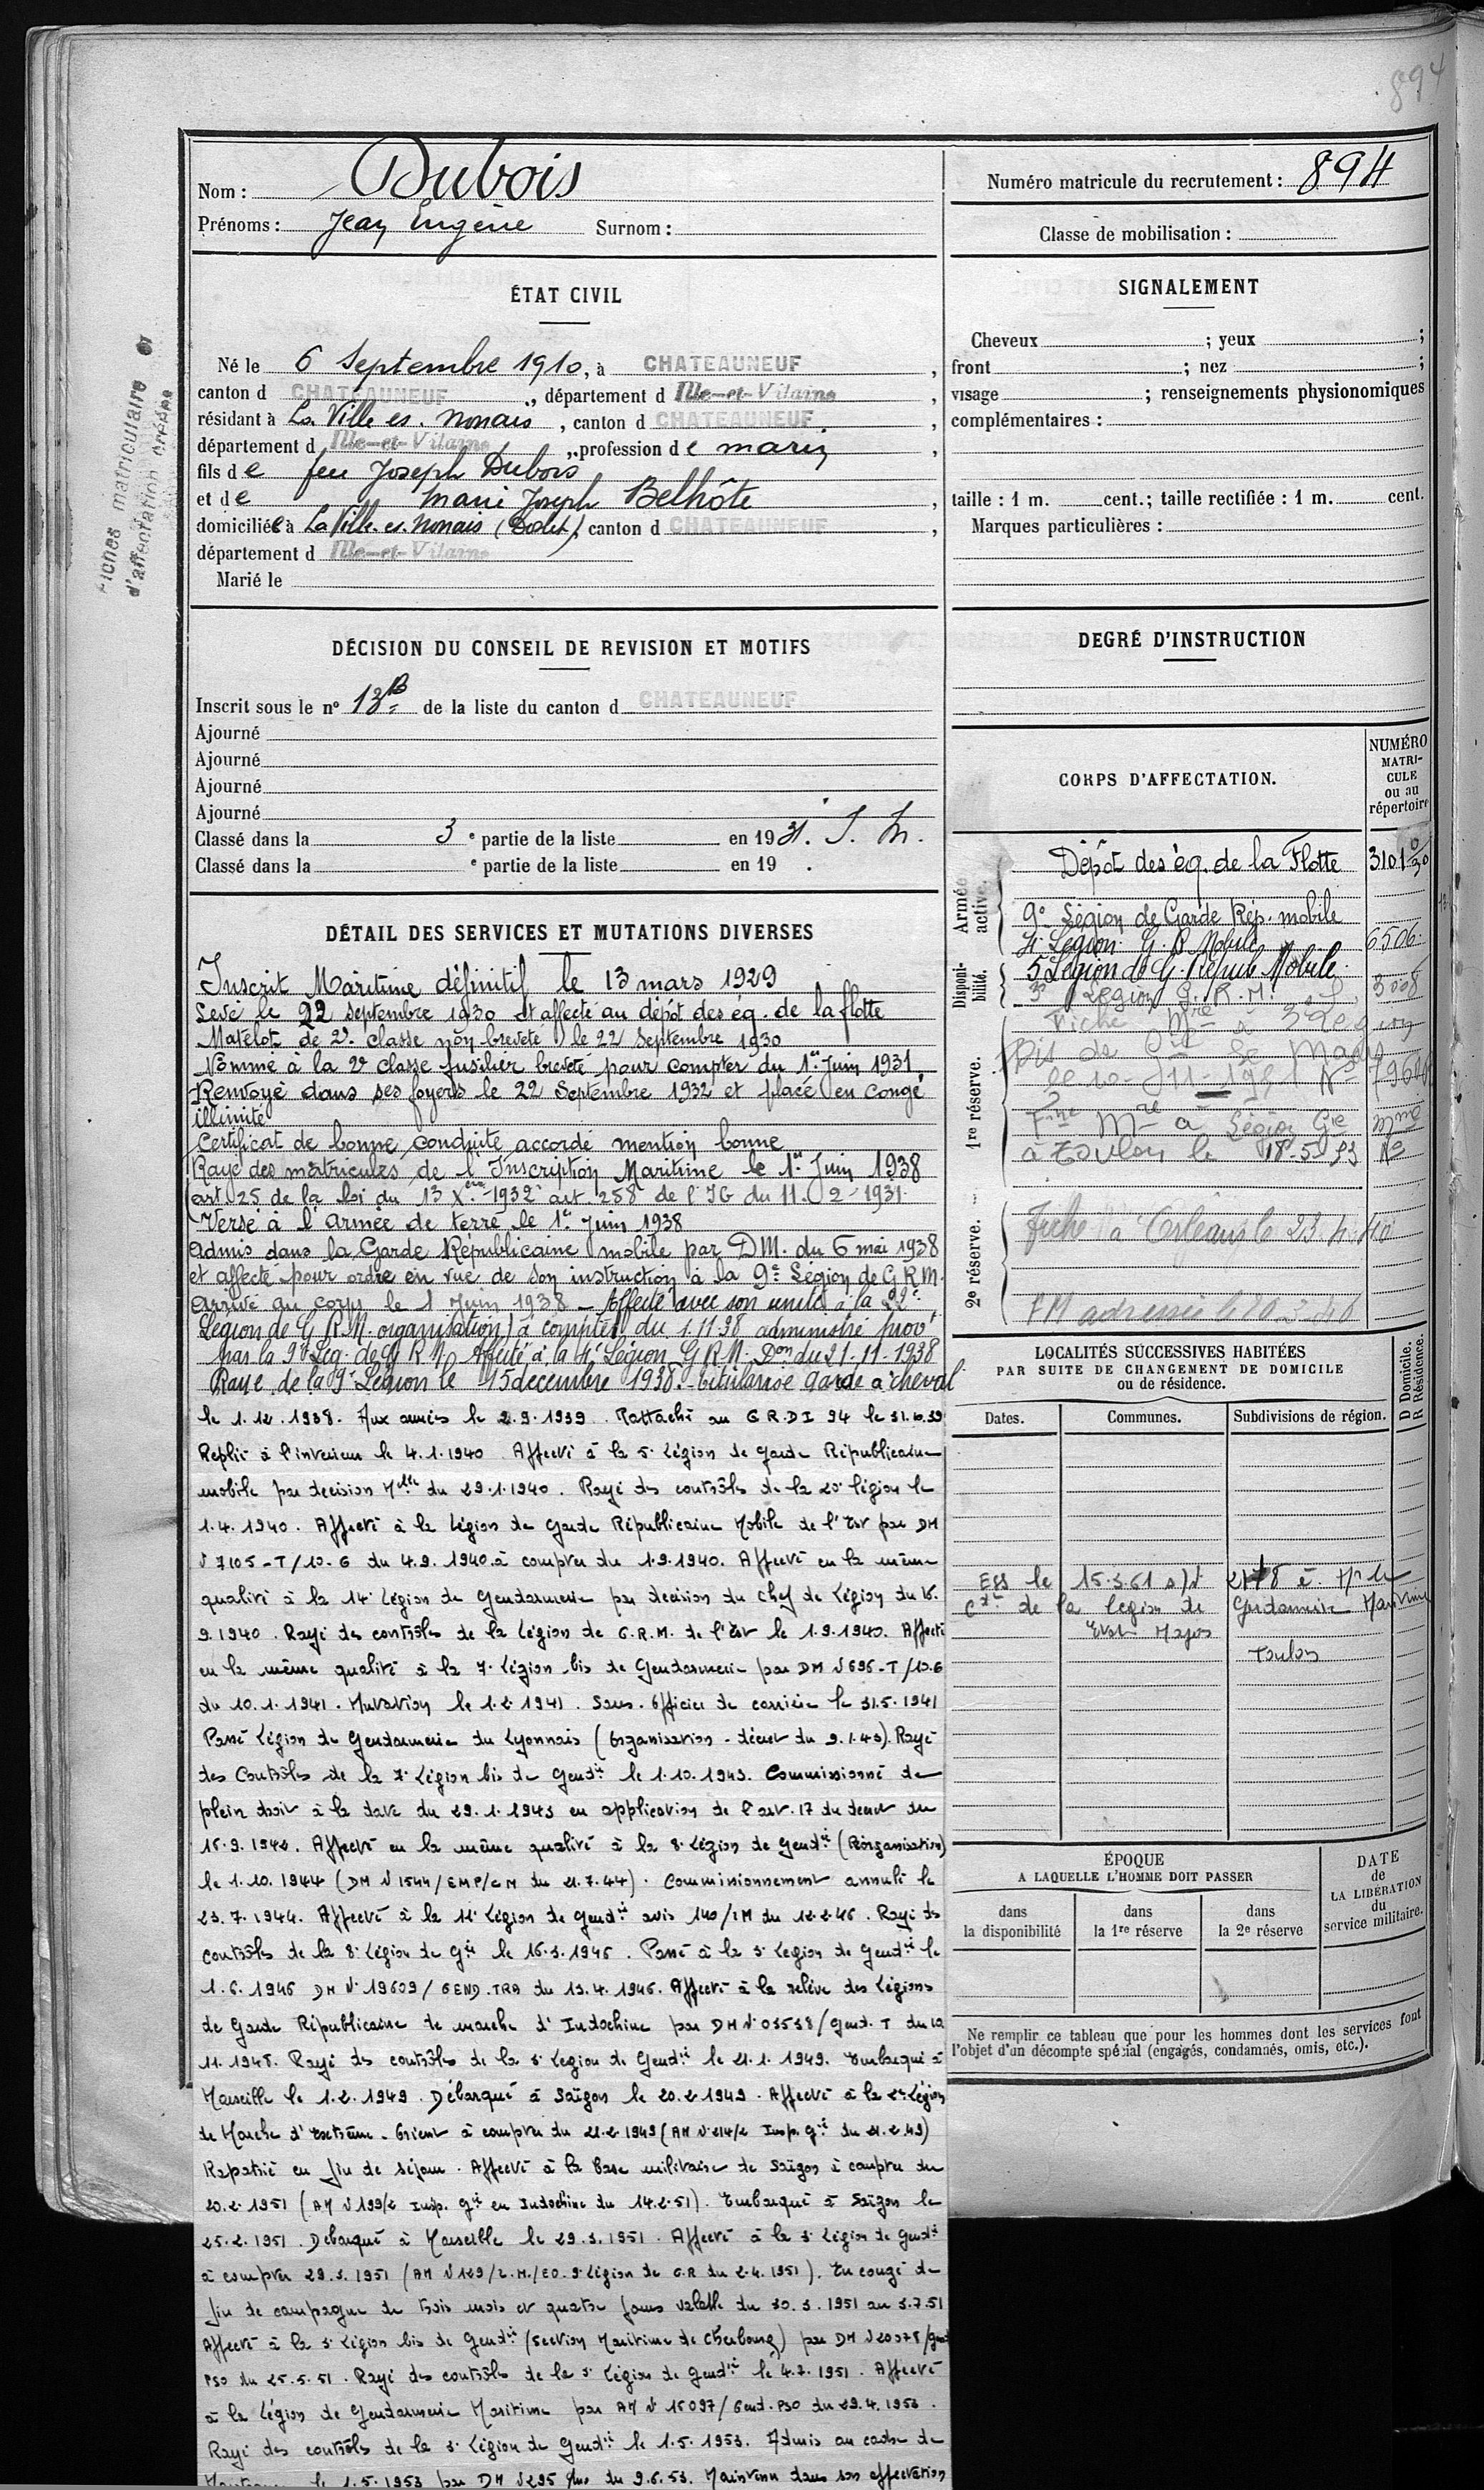 894
Nom : Dubois
Prénoms : Jean Eugène Surnom :
Numéro matricule du recrutement : 894
Classe de mobilisation :
Fiches matriculaire et
d'affectation créées
ÉTAT CIVIL
Né le 6 Septembre 1910, à CHATEAUNEUF,
canton d CHATEAUNEUF, département d Ille-et-Vilaine,
résidant à La Ville es. Nonais, canton d CHATEAUNEUF,
département d Ille-et-Vilaine, profession de marin,
fils de feu Joseph Dubois
et de Marie Joseph Belhôte,
domiciliée à La Ville es. Nonais, canton d CHATEAUNEUF,
département d Ille-et-Vilaine
Marié le
SIGNALEMENT
Cheveux ; yeux ;
front ; nez ;
visage ; renseignements physionomiques
complémentaires :
taille : 1 m. cent. ; taille rectifiée : 1 m. cent.
Marques particulières :
DÉCISION DU CONSEIL DE REVISION ET MOTIFS
Inscrit sous le n° 13 B de la liste du canton d CHATEAUNEUF
Ajourné
Ajourné
Ajourné
Ajourné
Classé dans la 3 e partie de la liste en 1931. I. M.
Classé dans la e partie de la liste en 19 .
DEGRÉ D'INSTRUCTION
CORPS D'AFFECTATION.
NUMÉRO
MATRI-
CULE
ou au
répertoire
Armée active.
Dépôt des éq. de la Flotte 3101
9e Légion de Garde Rép. mobile
4e Légion G. R Mobile 6506
Disponi-
bilité.
5 Légion de G. Répub Mobile
3e Légion G. R. M. 3008
1re réserve.
Fiche à 3e Légion
à Légion Gie
à Toulon le 18-5-53
2e réserve.
Fiche à Orléans le 23 4 40
FM adressée le
DÉTAIL DES SERVICES ET MUTATIONS DIVERSES
Inscrit Maritime définitif le 13 mars 1929
Levé le 22 septembre 1930 et affecté au dépôt des éq. de la flotte
Matelot de 2e classe non breveté le 22 Septembre 1930
Nommé à la 2e classe fusilier breveté pour compter du 1er Juin 1931.
Renvoyé dans ses foyers le 22 Septembre 1932 et placé en congé
illimité
Certificat de bonne conduite accordé mention bonne
Rayé des matricules de l'Inscription Maritime le 1er Juin 1938
art 25 de la loi du 13 Xbre 1932 art. 258 de l'IG du 11. 2 - 1931.
Versé à l'armée de terre le 1er Juin 1938
Admis dans la Garde Républicaine mobile par DM. du 6 mai 1938
et affecté pour ordre en vue de son instruction à la 9e Légion de G R M.
Arrivé au corps le 1 Juin 1938 - Affecté avec son unité à la
Légion de G R M. organisation) à compter du 1.11.38 administré provt
par la 9e Lég. de G R M. Affecté à la 4e Légion G R M. Don du 21-11-1938
Rayé de la 9e Légion le 15 décembre 1938. - titularisé Garde à cheval
le 1.12.1938. Aux armées le 2.9.1939. Rattaché au G R.D I 94 le 31.10.39
Replié à l'intérieur le 4.1.1940. Affecté à la 5e Légion de Garde Républicaine
mobile par décision Melle du 29.1.1940. Rayé des contrôles de la légion le
1.4.1940. Affecté à la Légion de Garde Républicaine Mobile de l'Est par DM
N 7105-T/10.G du 4.9.1940 à compter du 1.9.1940. Affecté en la même
qualité à la 14e Légion de Gendarmerie par décision du Chef de Légion du
9.1940. Rayé des contrôles de la Légion de G.R.M. de l'Est le 1.9.1940. Affecté
en la même qualité à la 7e Légion bis de Gendarmerie par DM N 696-T/10.G
du 10.1.1941. Mutation le 1.2.1941. Sous-Officier de carrière le 31.5.1941
Passé Légion de Gendarmerie du Lyonnais (Organisation - décret du 9.1.43). Rayé
des Contrôles de la 7e Légion bis de Gendie le 1.10.1943. Commissionné de
plein droit à la date du 29.1.1943 en application de l'art. 17 du décret du
15.9.1942. Affecté en la même qualité à la 8e Légion de Gendie (Réorganisation)
le 1.10.1944 (DM N 1544/EMP/CM du 21.7.44). Commissionnement annulé le
23.7.1944. Affecté à la Légion de Gendie avis 140/1M du 12.2.46. Rayé des
contrôles de la 8e Légion de Gie le 16.3.1946. Passé à la 3e Légion de Gendie le
1.6.1946 DM N° 19609/GEND.TRA du 13.4.1946. Affecté à la relève des Légions
de Garde Républicaine de marche d'Indochine par DM N° 03538/Gend. T du
11.1948. Rayé des contrôles de la 3e Légion de Gendie le 21.1.1949. Embarqué à
Marseille le 1.2.1949. Débarqué à Saïgon le 20.2.1949. Affecté à la 2e Légion
de Marche d'Extrême-Orient à compter du 21.2.1949 (AM N° 214/2 Insp. Gie du 21.2.49)
Rapatrié en fin de séjour. Affecté à la base militaire de Saïgon à compter du
20.2.1951 (AM N 199/2 Insp. Gie en Indochine du 14.2.51). Embarqué à Saïgon le
25.2.1951. Débarqué à Marseille le 29.3.1951. Affecté à la 3e Légion de Gendie
à compter 29.3.1951 (AM N 129/L.M./EO. 9e Légion de G.R du 2.4.1951). En congé de
fin de campagne de trois mois et quatre jours valable du 30.3.1951 au 3.7.51
Affecté à la 3e Légion bis de Gendie (Section Maritime de Cherbourg) par DM N 20378/Gend
PSO du 25.5.51. Rayé des contrôles de la 3e Légion de Gendie le 4.7.1951. Affecté
à la Légion de Gendarmerie Maritime par AM N 15097/Gend. PSO du 29.4.1953.
Rayé des contrôles de la 3e Légion de Gendie le 1.5.1953. Admis au cadre de
le 1.5.1953 par DM N 295 du 9.6.53. Maintenu dans son affectation
LOCALITÉS SUCCESSIVES HABITÉES
PAR SUITE DE CHANGEMENT DE DOMICILE
ou de résidence.
D Domicile.
R Résidence.
Dates. Communes. Subdivisions de région.
ESS le 15.3.61
de la Légion de Gendarmerie Maritime
Etat Major
Toulon
ÉPOQUE
A LAQUELLE L'HOMME DOIT PASSER
DATE
de
LA LIBÉRATION
du
service militaire.
dans
la disponibilité
dans
la 1re réserve
dans
la 2e réserve
Ne remplir ce tableau que pour les hommes dont les services font
l'objet d'un décompte spécial (engagés, condamnés, omis, etc.).